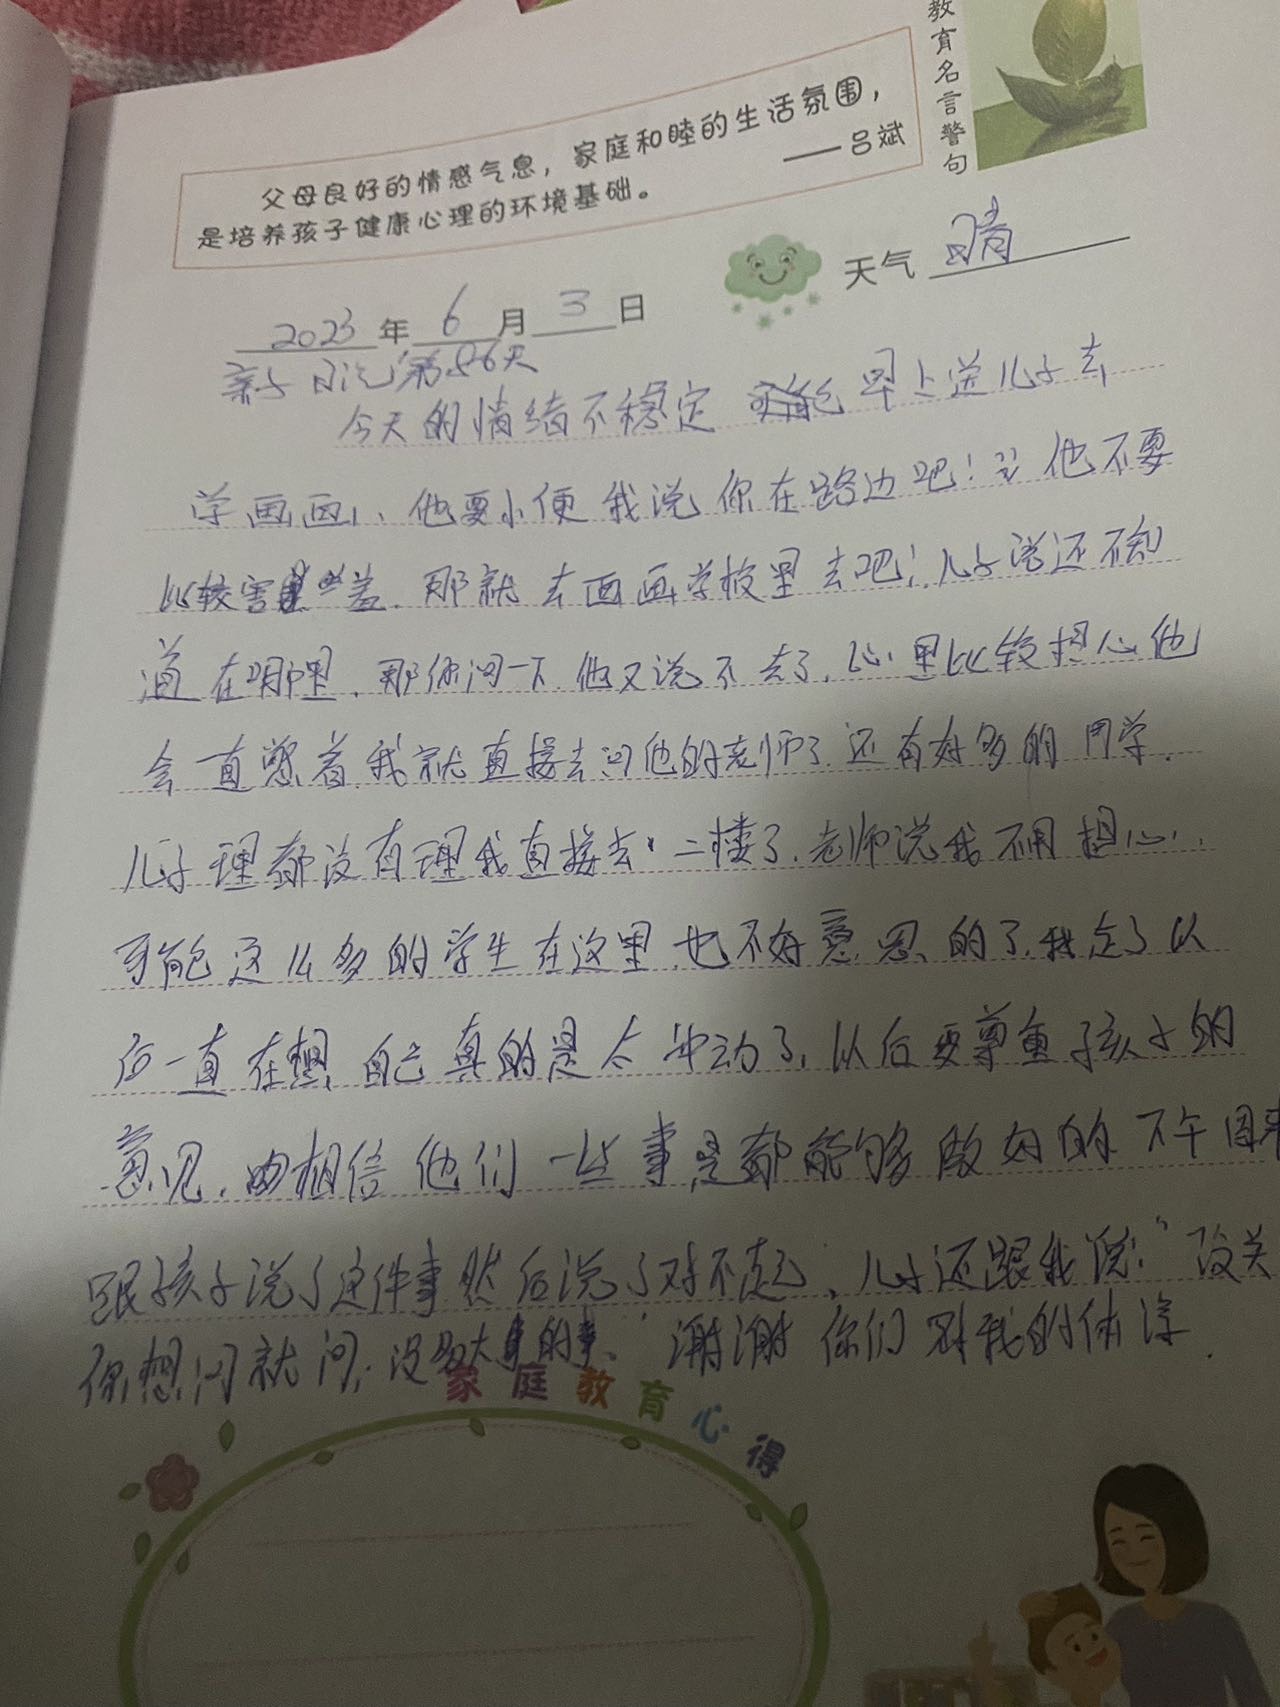 教育名言警句
父母良好的情感气息，家庭和睦的生活氛围，
是培养孩子健康心理的环境基础。 ——吕斌
2023年6月3日 天气 晴
亲子日记第86天
今天的情绪不稳定 早上送儿子去
学画画，他要小便 我说你在路边吧！他不要
比较害羞．那就去画画学校里去吧！儿子说还不知
道在哪里．那你问一下．他又说不去了．心里比较担心他
会一直憋着．我就直接去问他的老师了．还有好多的同学．
儿子理都没有理我直接去二楼了．老师说我不用担心．
可能这么多的学生在这里．也不好意思的了．我走了以
后一直在想．自己真的是太冲动了．以后要尊重孩子的
意见．相信他们一些事是都能够做好的 下午回来
跟孩子说了这件事然后说了对不起．儿子还跟我说：“没关
你想问就问．没多大事的．”谢谢你们对我的体谅．
家庭教育心得